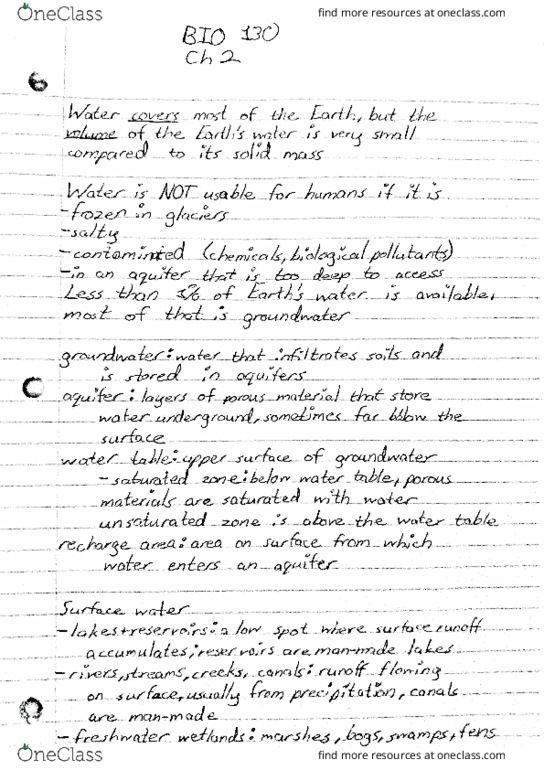 OneClass
find more resources at oneclass.com
BIO 130
Ch 2
Water covers most of the Earth, but the
volume of the Earth's water is very small
compared to its solid mass
Water is NOT usable for humans if it is
-frozen in glaciers
-salty
-contaminted (chemicals, biological pollutants)
-in an aquifer that is too deep to access
Less than % of Earth's water is available,
most of that is groundwater
groundwater: water that infiltrates soils and
is stored in aquifers
aquifer: layers of porous material that store
water underground, sometimes far below the
surface
water table: upper surface of groundwater
-saturated zone: below water table, porous
materials are saturated with water
unsaturated zone is above the water table
recharge area: area on surface from which
water enters an aquifer
Surface water
-lakes+reservoirs: a low spot where surface runoff
accumulates, reservoirs are man-made lakes
-rivers, streams, creeks, canals: runoff flowing
on surface, usually from precipitation, canals
are man-made
-freshwater wetlands: marshes, bogs, swamps, fens
OneClass
find more resources at oneclass.com